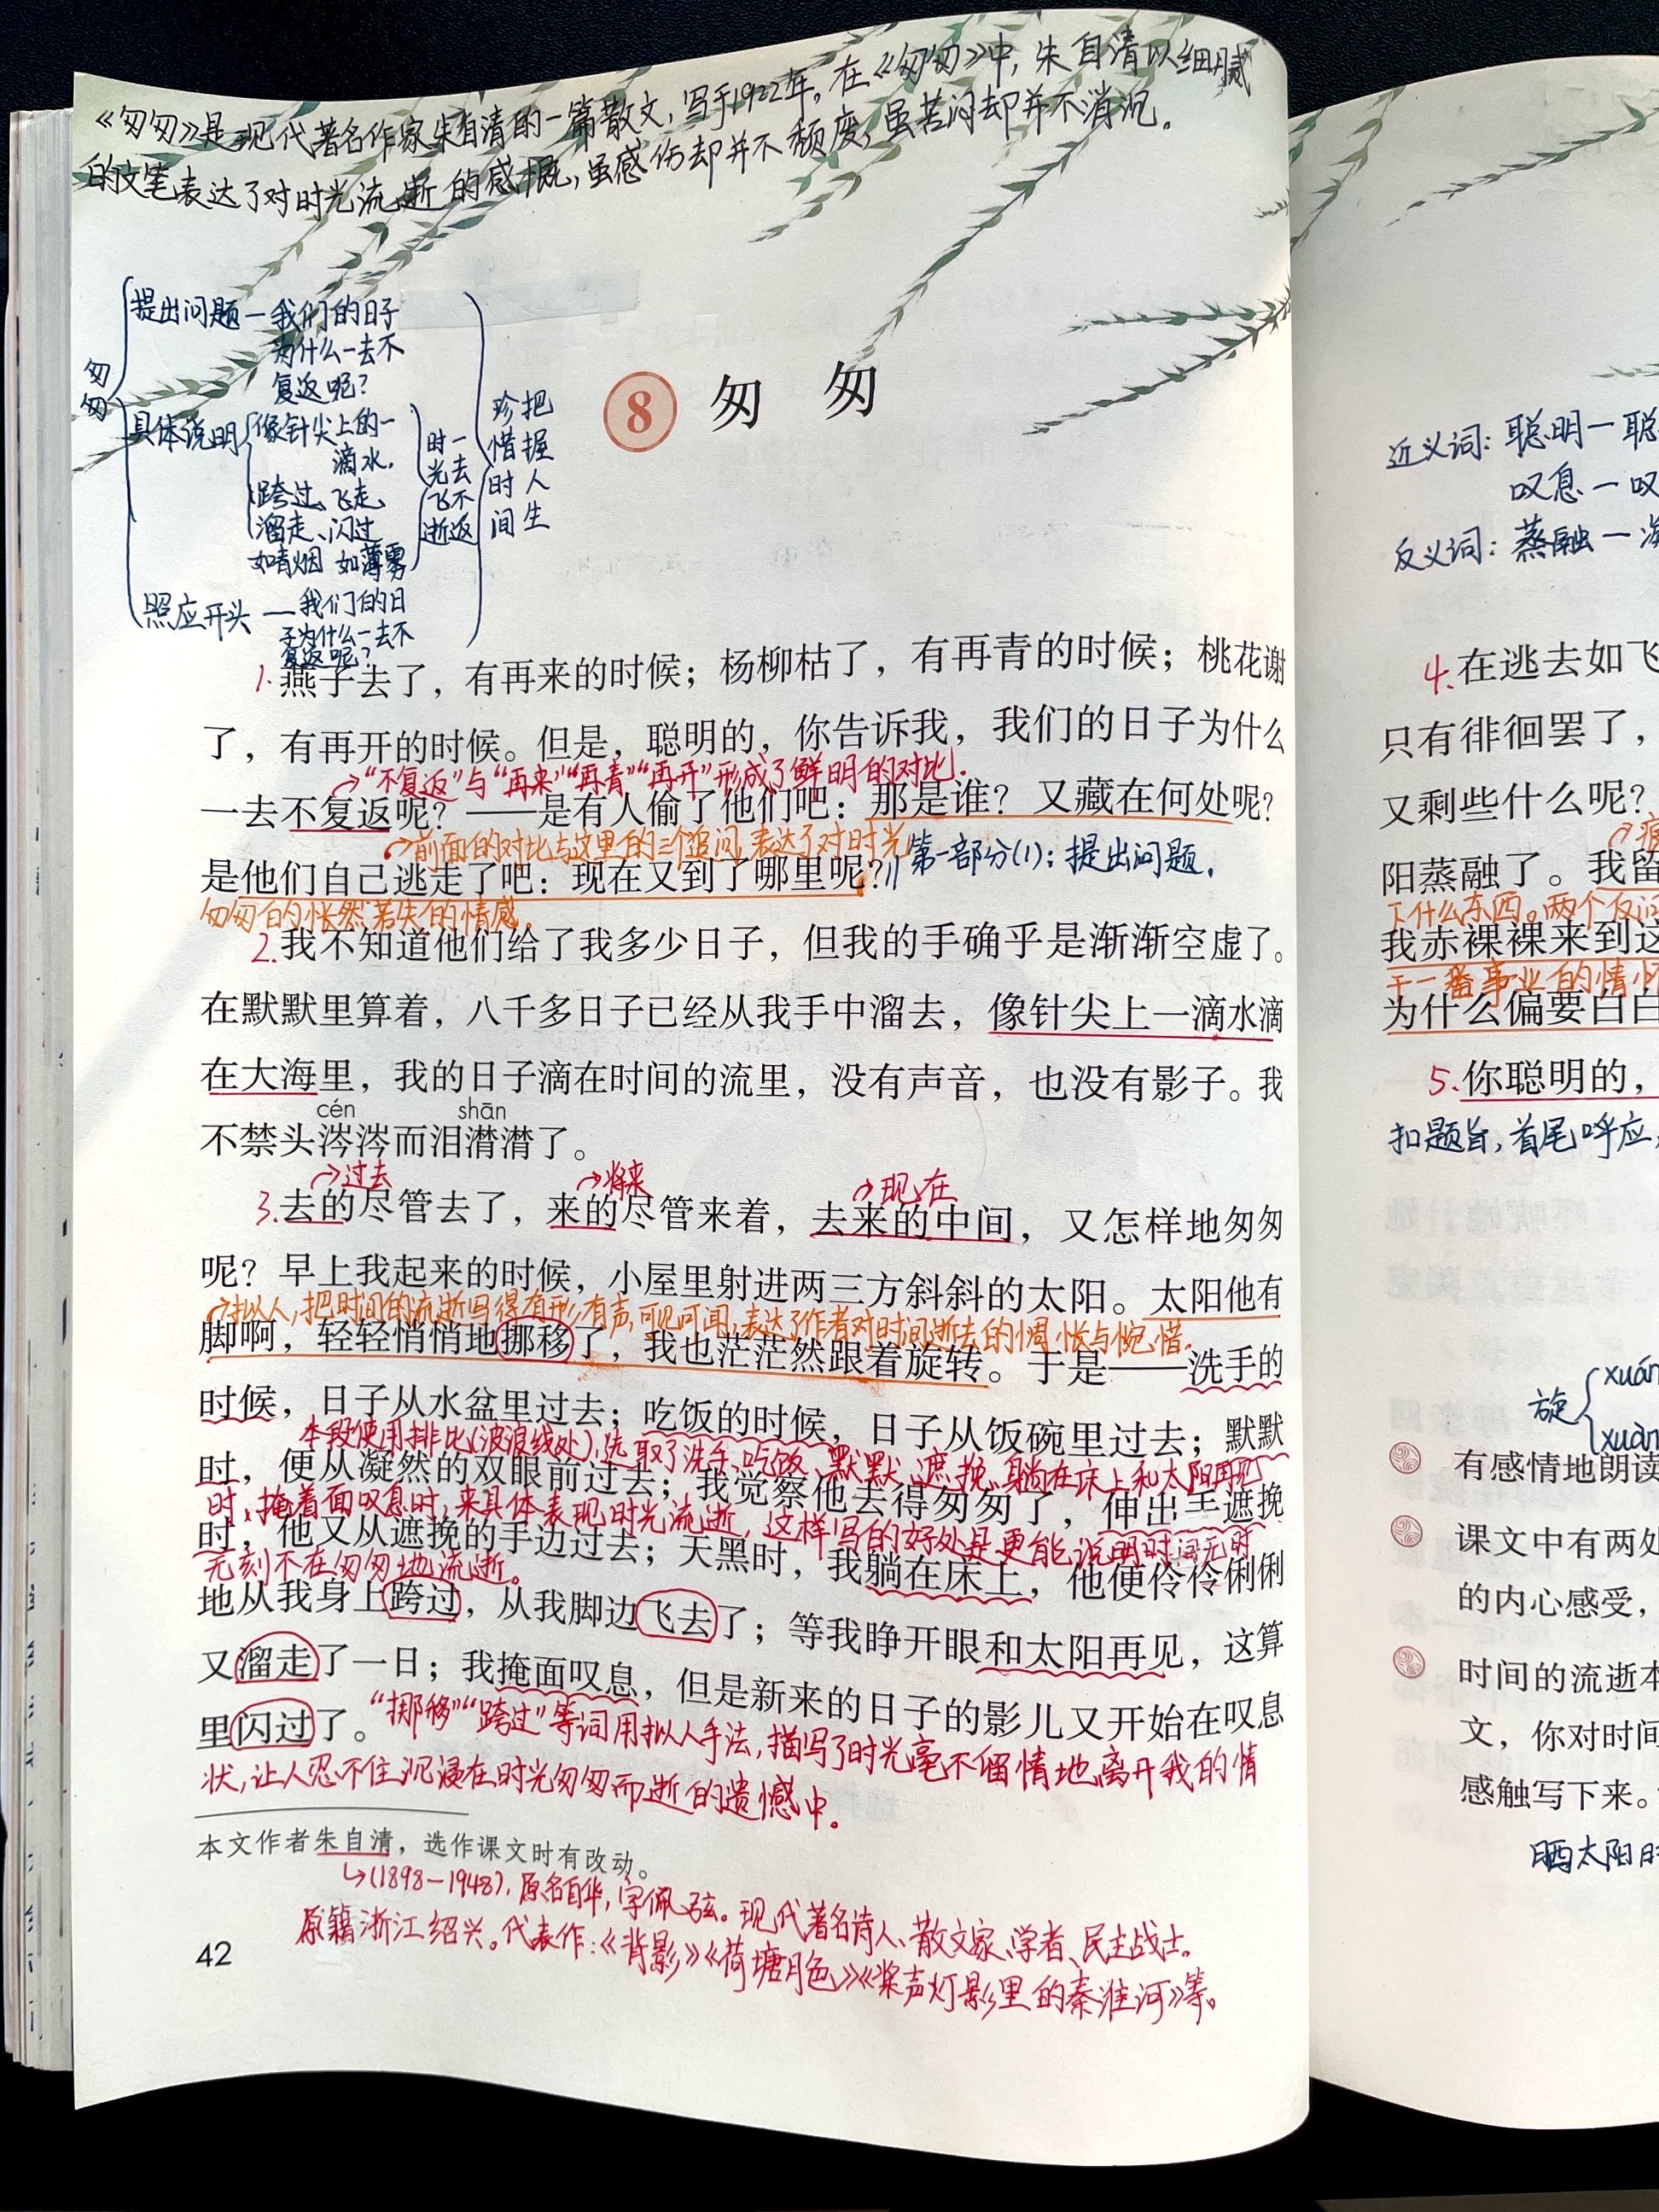 《匆匆》是现代著名作家朱自清的一篇散文,写于1922年。在《匆匆》中,朱自清以细腻
的文笔表达了对时光流逝的感慨,虽感伤却并不颓废,虽苦闷却并不消沉。
匆匆
提出问题—我们的日子
为什么一去不
复返呢?
具体说明
像针尖上的一
滴水,
跨过、飞走、
溜走、闪过
如晴烟 如薄雾
时光飞逝
一去不返
珍惜时间
把握人生
照应开头—我们的日
子为什么一去不
复返呢?
8 匆匆
1.燕子去了,有再来的时候;杨柳枯了,有再青的时候;桃花谢
了,有再开的时候。但是,聪明的,你告诉我,我们的日子为什么
“不复返”与“再来”“再青”“再开”形成了鲜明的对比。
一去不复返呢?——是有人偷了他们吧:那是谁?又藏在何处呢?
前面的对比与这里的三个追问,表达了对时光
是他们自己逃走了吧:现在又到了哪里呢?
第一部分(1):提出问题。
匆匆的怅然若失的情感。
2.我不知道他们给了我多少日子,但我的手确乎是渐渐空虚了。
在默默里算着,八千多日子已经从我手中溜去,像针尖上一滴水滴
在大海里,我的日子滴在时间的流里,没有声音,也没有影子。我
cén shān
不禁头涔涔而泪潸潸了。
过去 将来 现在
3.去的尽管去了,来的尽管来着,去来的中间,又怎样地匆匆
呢?早上我起来的时候,小屋里射进两三方斜斜的太阳。太阳他有
拟人,把时间的流逝写得有形有声,可见可闻,表达了作者对时间逝去的惆怅与惋惜。
脚啊,轻轻悄悄地挪移了,我也茫茫然跟着旋转。于是——洗手的
时候,日子从水盆里过去;吃饭的时候,日子从饭碗里过去;默默
本段使用排比(波浪线处),选取了洗手、吃饭、默默、遮挽、躺在床上和太阳再见
时,便从凝然的双眼前过去;我觉察他去得匆匆了,伸出手遮挽
时,掩着面叹息时,来具体表现时光流逝,这样写的好处是更能说明时间无时
时,他又从遮挽的手边过去;天黑时,我躺在床上,他便伶伶俐俐
无刻不在匆匆地流逝。
地从我身上跨过,从我脚边飞去了;等我睁开眼和太阳再见,这算
又溜走了一日;我掩面叹息,但是新来的日子的影儿又开始在叹息
里闪过了。
“挪移”“跨过”等词用拟人手法,描写了时光毫不留情地离开我的情
状,让人忍不住沉浸在时光匆匆而逝的遗憾中。
本文作者朱自清,选作课文时有改动。
(1898-1948),原名自华,字佩弦。现代著名诗人、散文家、学者、民主战士。
原籍浙江绍兴。代表作:《背影》《荷塘月色》《桨声灯影里的秦淮河》等。
42
近义词:聪明—聪
叹息—叹
反义词:蒸融—凝
4.在逃去如飞
只有徘徊罢了,
又剩些什么呢?
阳蒸融了。我留
下什么东西。两个反问
我赤裸裸来到这
干一番事业的情怀
为什么偏要白白
5.你聪明的,
扣题旨,首尾呼应,
旋
xuán
xuàn
有感情地朗读
课文中有两处
的内心感受,
时间的流逝本
文,你对时间
感触写下来。
晒太阳时